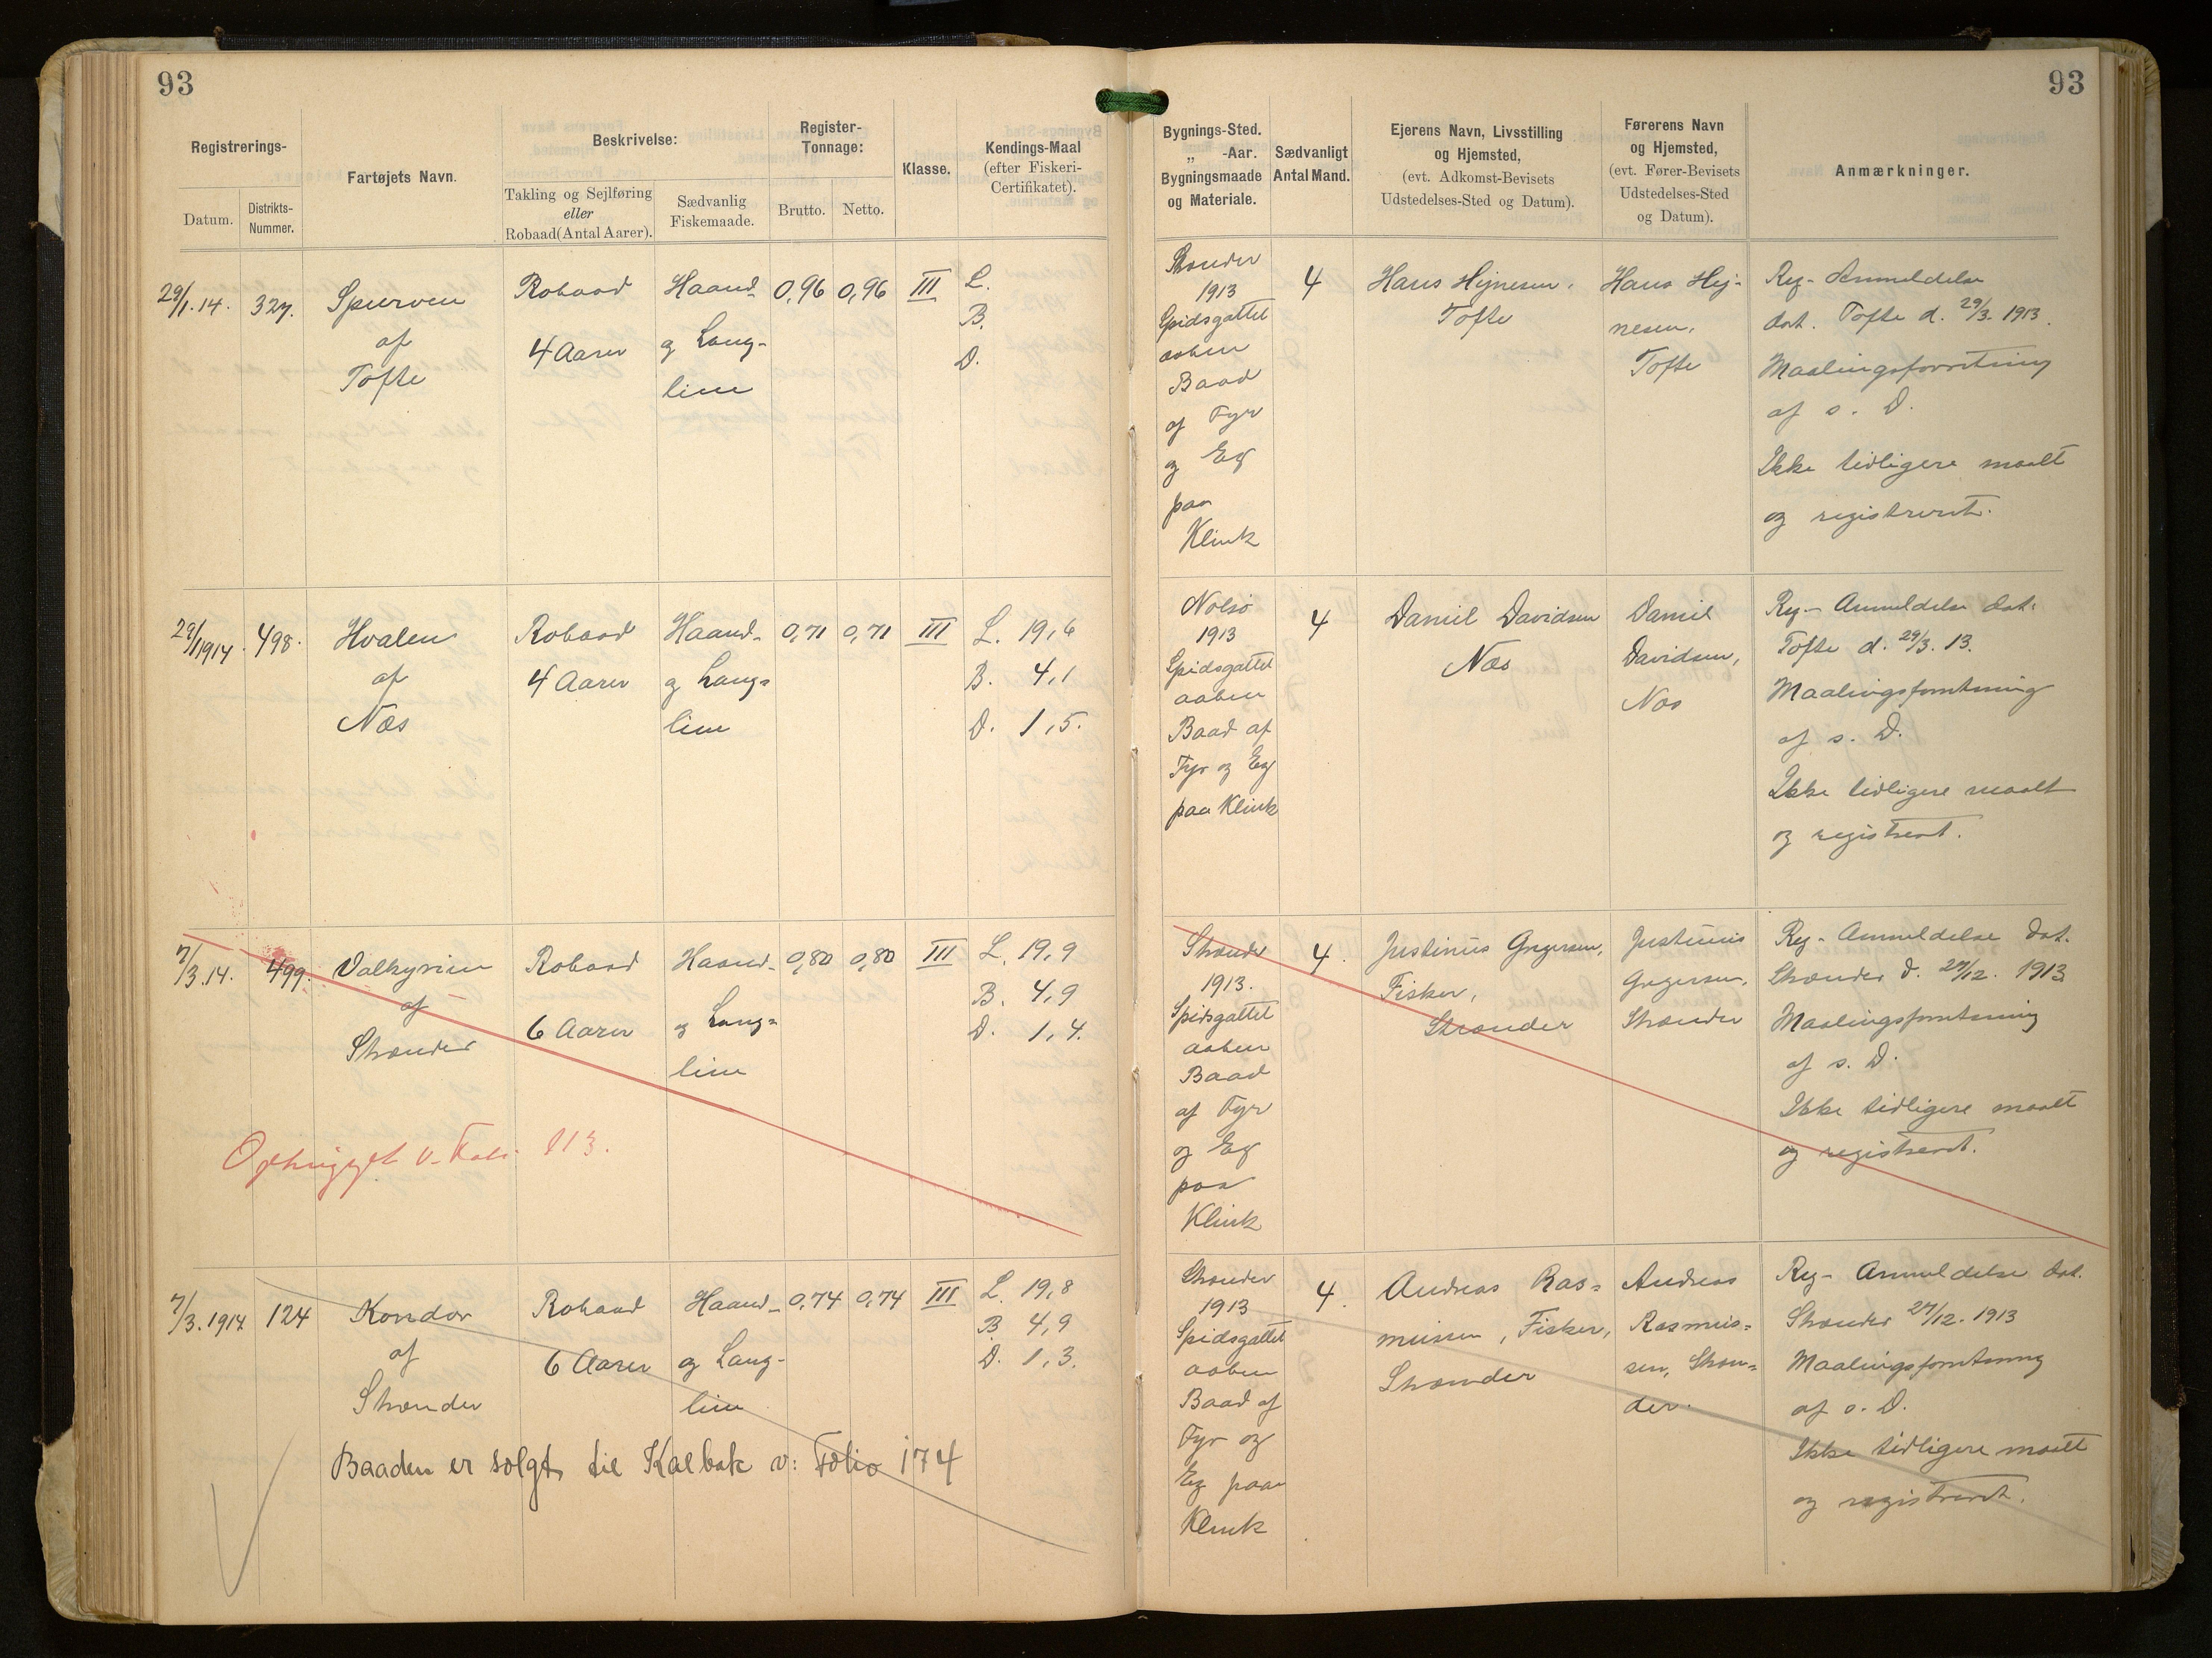 93
93
Registrerings-
Datum.
Distrikts-
Nummer.
Fartøjets Navn.
Beskrivelse:
Takling og Sejlføring
eller
Robaad(Antal Aarer).
Sædvanlig
Fiskemaade.
Register-
Tonnage:
Brutto.
Netto.
Klasse.
Kendings-Maal
(efter Fiskeri-
Certifikatet).
Bygnings-Sted.
„ -Aar.
Bygningsmaade
og Materiale.
Sædvanligt
Antal Mand.
Ejerens Navn, Livsstilling
og Hjemsted,
(evt. Adkomst-Bevisets
Udstedelses-Sted og Datum).
Førerens Navn
og Hjemsted,
(evt. Fører-Bevisets
Udstedelses-Sted
og Datum).
Anmærkninger.
29/1.14.
327.
Spurven
af
Tofte
Robaad
4 Aarer
Haand-
og Lang-
line
0,96
0,96
III
L.
B.
D.
Strænder
1913
Spidsgattet
aaben
Baad
af Fyr
og Eg
paa
Klink
4
Hans Hejnesen,
Tofte
Hans Hej-
nesen,
Tofte
Reg- Anmeldelse
dat. Tofte d. 29/3. 1913.
Maalingsforretning
af s. D.
Ikke tidligere maalt
og registreret.
29/1 1914.
498.
Hvalen
af
Næs
Robaad
4 Aarer
Haand-
og Lang-
line
0,71
0,71
III
L. 19,6
B. 4,1
D. 1,5.
Nolsö
1913
Spidsgattet
aaben
Baad af
Fyr og Eg
paa Klink
4
Daniel Davidsen
Næs
Daniel
Davidsen,
Næs
Reg- Anmeldelse dat.
Tofte d. 29/3. 13.
Maalingsforretning
af s. D.
Ikke tidligere maalt
og registreret.
7/3.14.
499.
Valkyrien
af
Strænder
Robaad
6 Aarer
Haand-
og Lang-
line
0,80
0,80
III
L. 19,9
B. 4,9
D. 1,4.
Ophugget v. Folio 113.
Strænder
1913.
Spidsgattet
aaben
Baad
af Fyr
og Eg
paa
Klink
4.
Justinus Gregersen,
Fisker,
Strænder
Justinus
Gregersen,
Strænder
Reg- Anmeldelse dat.
Strænder d. 27/12. 1913
Maalingsforretning
af s. D.
Ikke tidligere maalt
og registreret.
7/3. 1914
124
Kondor
af
Strænder
Robaad
6 Aarer
Haand-
og Lang-
line
0,74
0,74
III
L. 19,8
B 4,9
D. 1,3.
Baaden er solgt til Kalbak v: Folio 174
Strænder
1913
Spidsgattet
aaben
Baad af
Fyr og
Eg paa
Klink
4.
Andreas Ras-
mussen, Fisker,
Strænder
Andreas
Rasmus-
sen, Stræn-
der.
Reg- Anmeldelse dat.
Strænder 27/12. 1913
Maalingsforretning
af s. D.
Ikke tidligere maalt
og registreret.